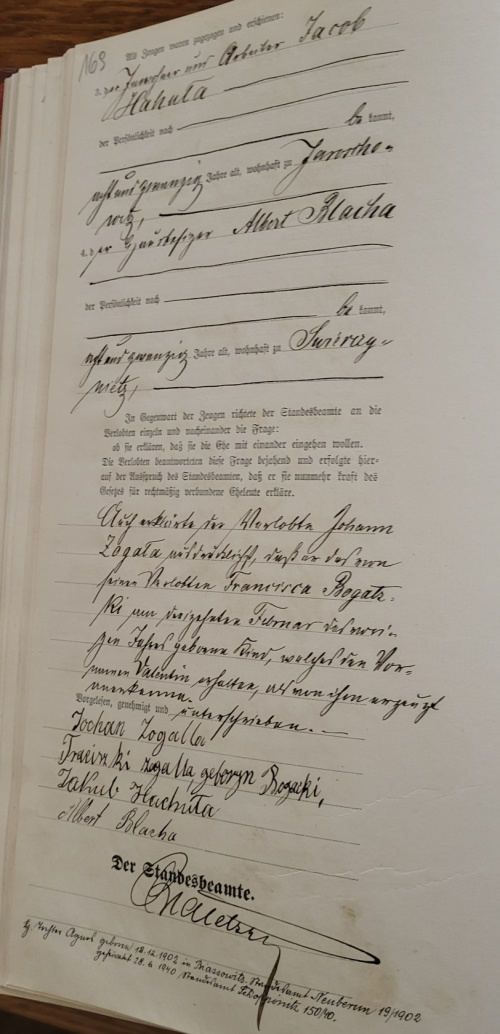 No 9
Als Zeugen waren zugezogen und erschienen:
3. der Arbeiter Jacob
Hahula
der Persönlichkeit nach
be kannt,
achtundzwanzig Jahre alt, wohnhaft zu Jaroscho-
witz,
4. der Hausbesitzer Albert Blacha
der Persönlichkeit nach
be kannt,
achtundzwanzig Jahre alt, wohnhaft zu
nietz,
In Gegenwart der Zeugen richtete der Standesbeamte an die
Verlobten einzeln und nacheinander die Frage:
ob sie erklären, daß sie die Ehe mit einander eingehen wollen.
Die Verlobten beantworteten diese Frage bejahend und erfolgte hier-
auf der Ausspruch des Standesbeamten, daß er sie nunmehr kraft des
Gesetzes für rechtmäßig verbundene Eheleute erkläre.
Auch erklärte der Verlobte Johann
Zogala ausdrücklich, daß er das von
seiner Verlobten Francisca Rogatz-
ki am dreizehnten Februar des vori-
gen Jahres geborene Kind, welches den Vor-
namen Valentin erhalten, als von ihm erzeugt
anerkenne.
Vorgelesen, genehmigt und unterschrieben.
Johan Zogalla
zogalla geboryn Rogacki,
Jakub Hachuła
Albert Blacha
Der Standesbeamte.
Tochter Agnes geboren 18.12.1902 in Standesamt Neuberun 19/1902
geheiratet 28.6.1940 Standesamt 150/40.